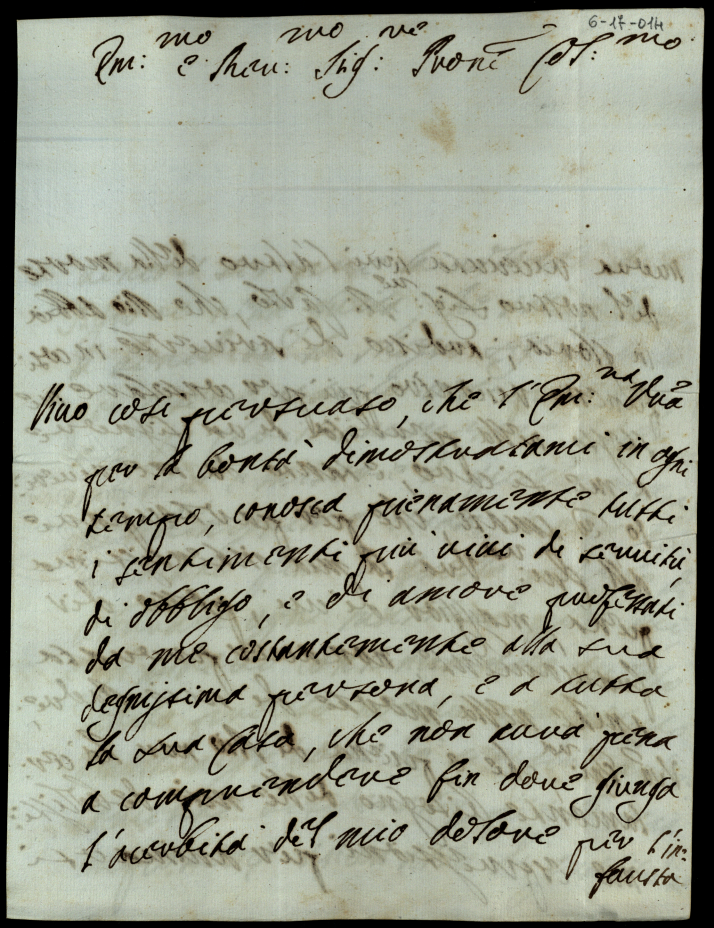 6-17-014
Em:mo e Rev:mo Sig:re Prone Col:mo
Vivo così persuaso, che l'Em:na Vra
per la bontà dimostratami in ogni
tempo, conosca pienamente tutti
i sentimenti più vivi di servitù,
di obbligo, e di amore professati
da me costantemente alla sua
degnissima persona, e a tutta
la sua Casa, che non avrà pena
a comprendere fin dove giunga
l'acerbità del mio dolore per l'in=
fausta